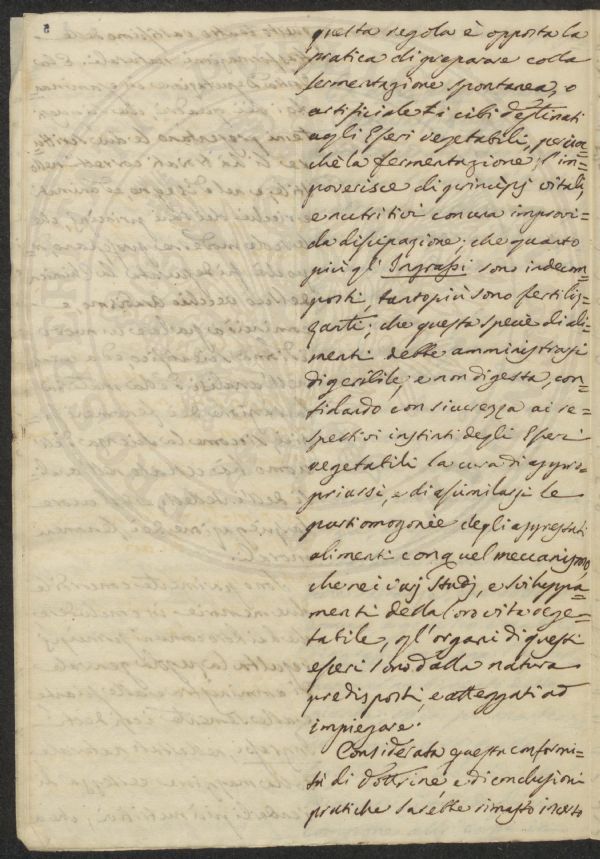 5
questa regola è opposta la
pratica di preparare colla
fermentazione spontanea, o
artificiale i cibi destinati
agli Eseri vegetabili, perioc=
chè la fermentazione, l'im=
poverisce di principj vitali,
e nutritivi con una improvi=
da discipazione; che quanto
più gl'Ingrassi sono indecom=
posti, tanto più sono fertiliz=
zanti; che questa specie di ali=
menti debbe amministrarsi
digeribile, e non digesta, con=
fidando con sicurezza ai re=
spettivi instinti degli Eseri
vegetabili la cura di appro=
priarsi, e di assimilarsi le
parti omogenee degli apprestati
alimenti con quel meccanismo,
che nei varj Studj, e sviluppa=
menti della loro vita vege=
tabile, gl'organi di questi
eseri sono dalla natura
predisposti, e atteggiati ad
impiegare.
Considerata questa conformi=
tà di dottrine, e di conclusioni
pratiche sarebbe rimasto incerto